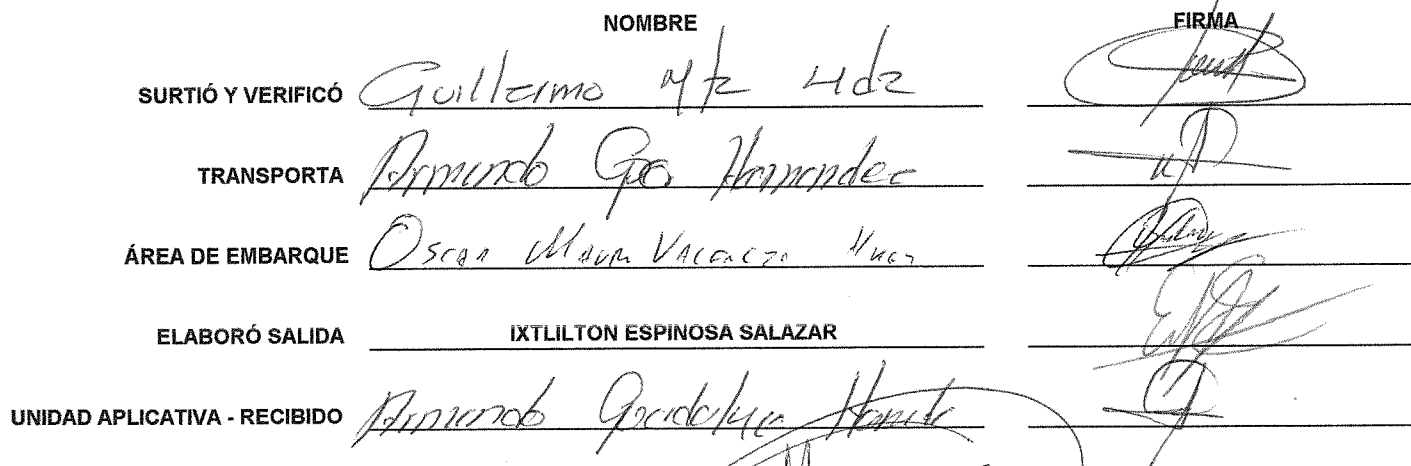 NOMBRE FIRMA
SURTIÓ Y VERIFICÓ Guillermo Mtz Hdz
TRANSPORTA Armando Gpe Hernandez
ÁREA DE EMBARQUE Oscar
ELABORÓ SALIDA IXTLILTON ESPINOSA SALAZAR
UNIDAD APLICATIVA - RECIBIDO Armando Guadalupe